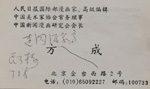 人民日报国际部漫画家、高级编辑
中国美术家协会常务理事
中国新闻漫画研究会会长
方成
北京金台西路2号
电话:(010)65092227 邮码:100733